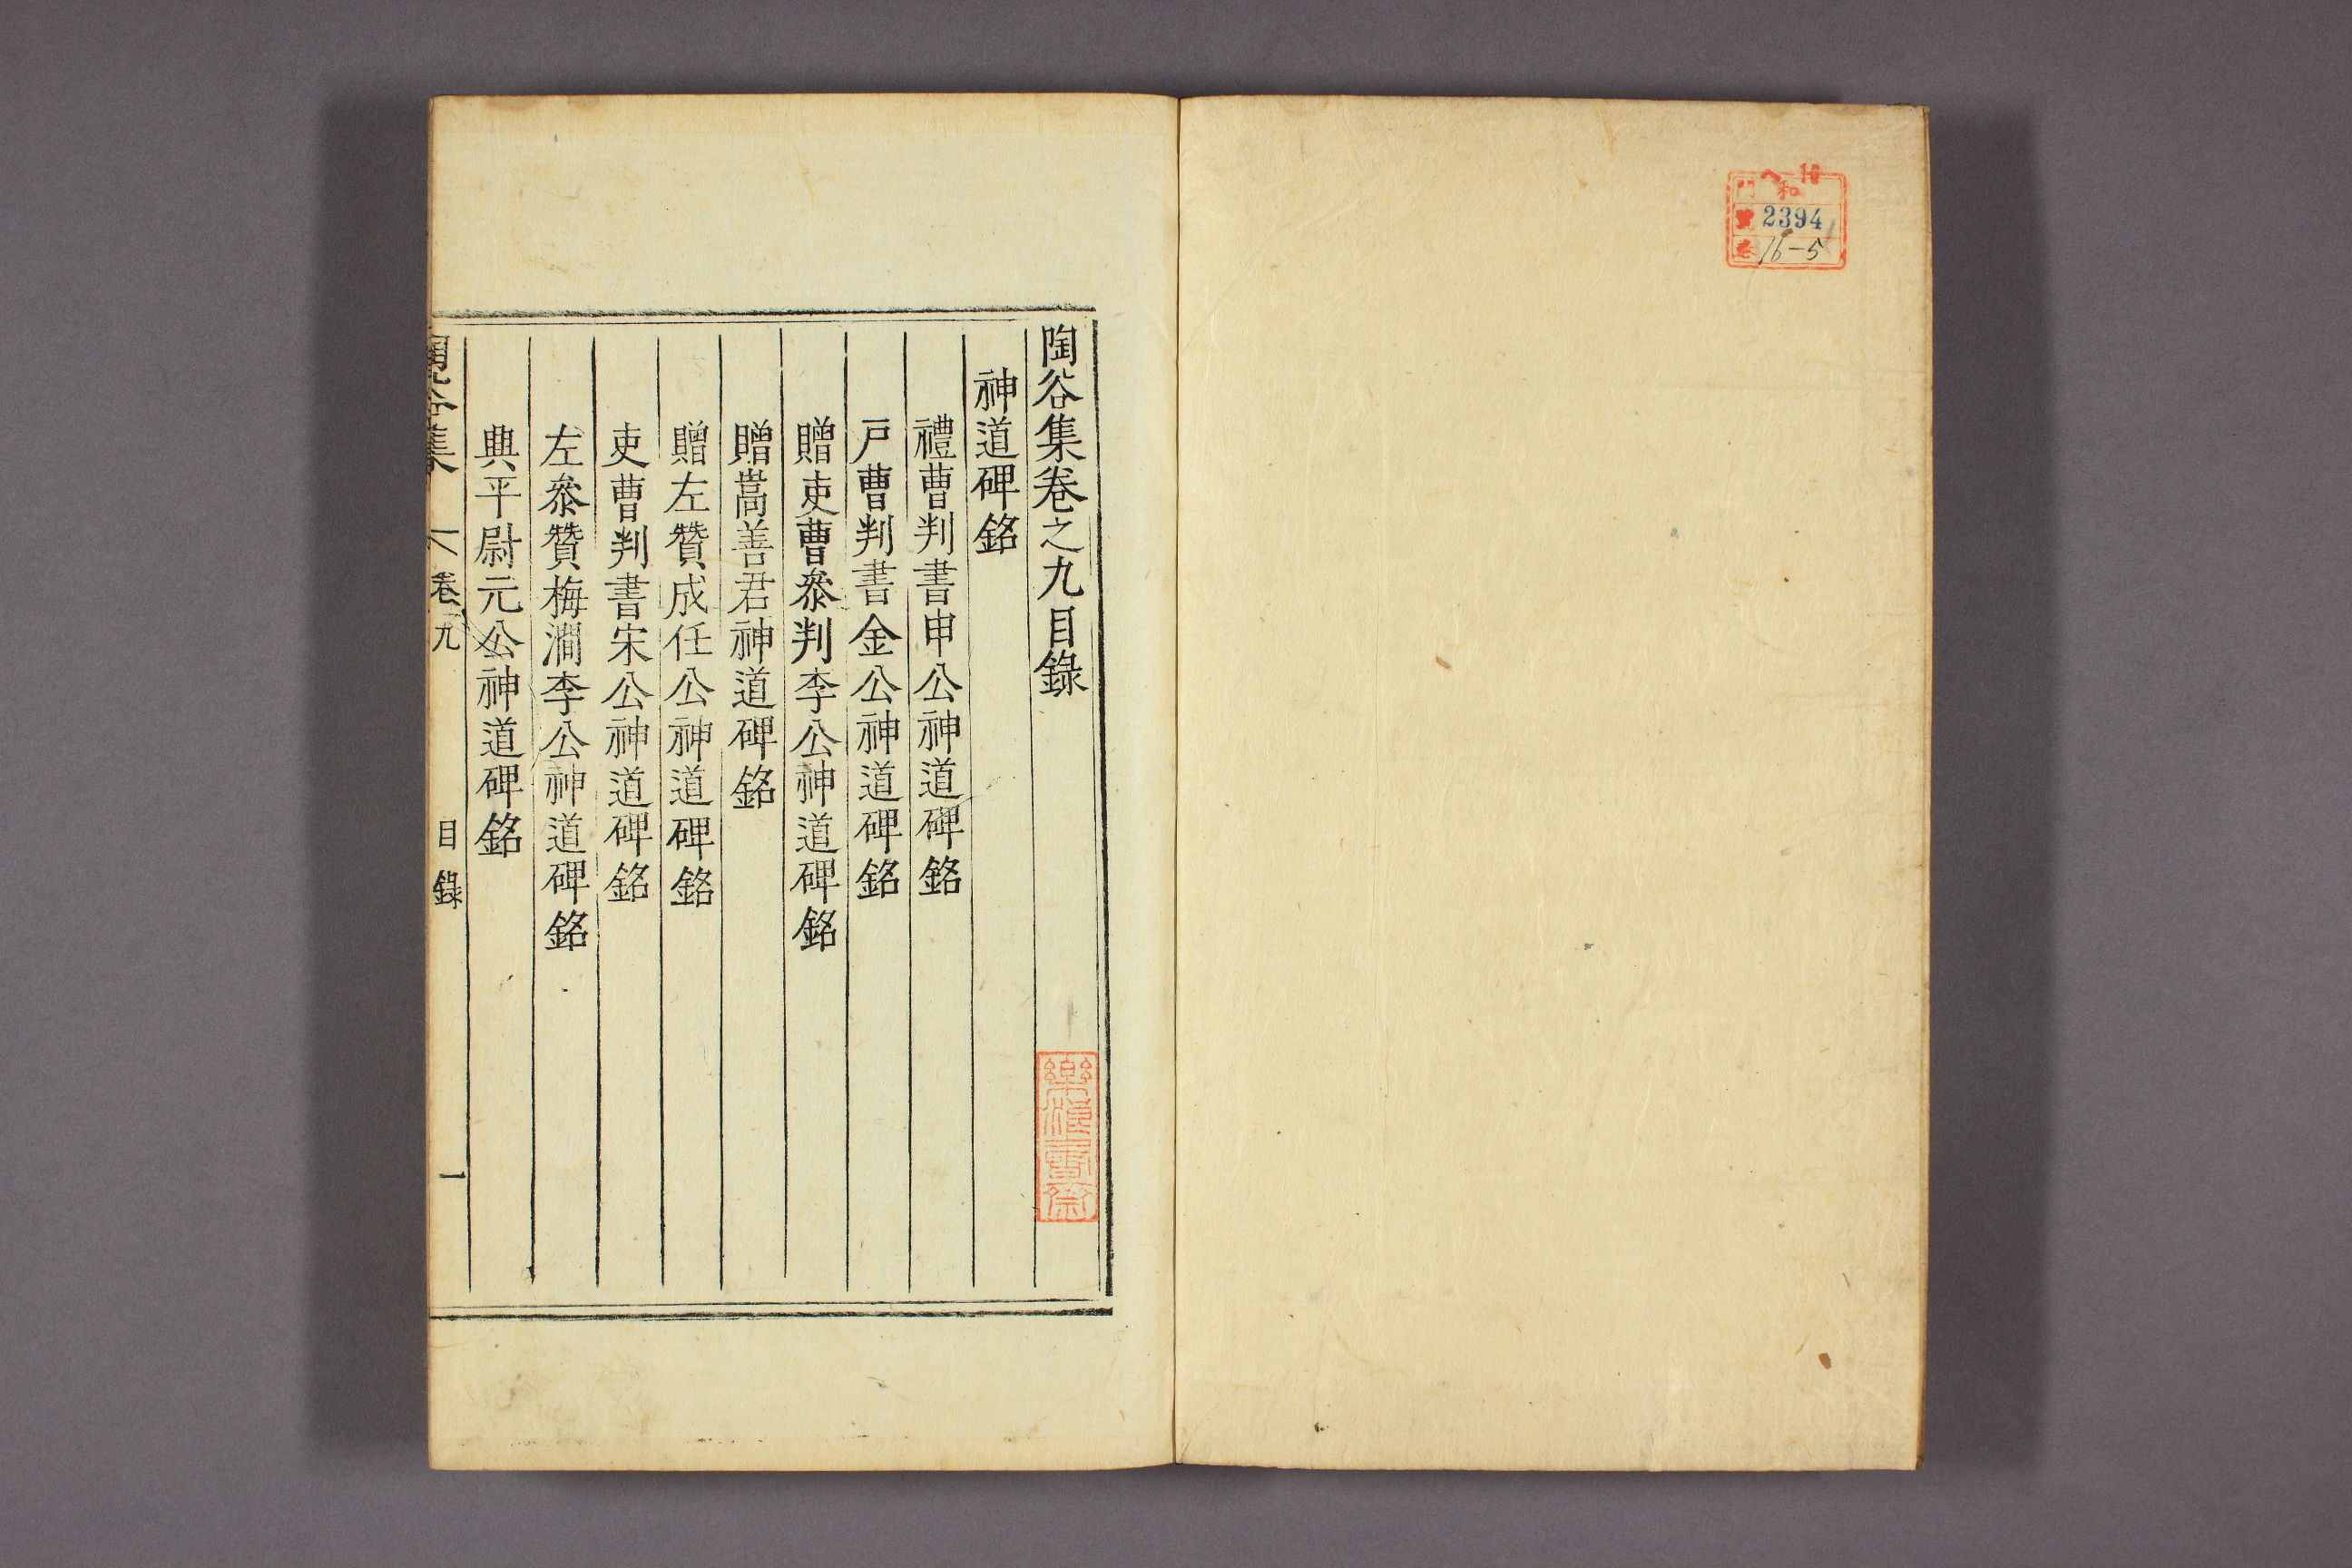 ヘ 16
門 和
號 2394
卷 16-5
陶谷集卷之九目錄
神道碑銘
禮曹判書申公神道碑銘
戶曹判書金公神道碑銘
贈吏曹叅判李公神道碑銘
贈嵩善君神道碑銘
贈左贊成任公神道碑銘
吏曹判書宋公神道碑銘
左叅贊梅澗李公神道碑銘
典平尉元公神道碑銘
陶谷集 卷九 目錄 一
樂浪書齋